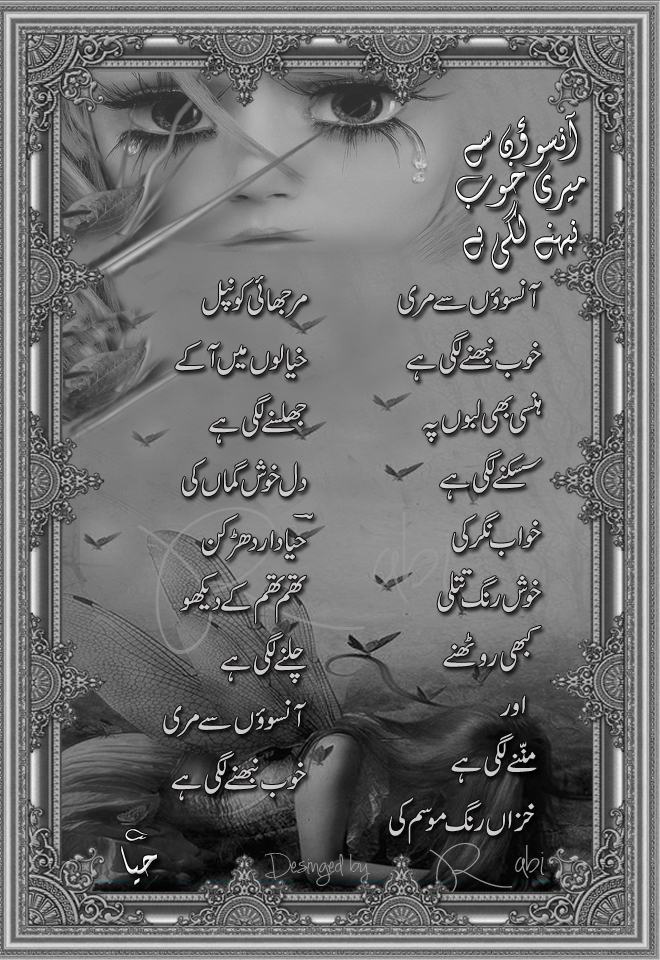 آنسوؤں سے
میری خوب
نبہنے لگی ہے
آنسوؤں سے مری
خوب نبھنے لگی ہے
ہنسی بھی لبوں پہ
سسکنے لگی ہے
خواب نگر کی
خوش رنگ تتلی
کبھی روٹھنے
اور
منّنے لگی ہے
خزاں رنگ موسم کی
مرجھائی کونپل
خیالوں میں آ کے
جھلسنے لگی ہے
دل خوش گماں کی
حیاؔ دار دھڑکن
تھم تھم کے دیکھو
چلنے لگی ہے
آنسوؤں سے مری
خوب نبھنے لگی ہے
حیاؔ
Desinged by Rabi
Rabi